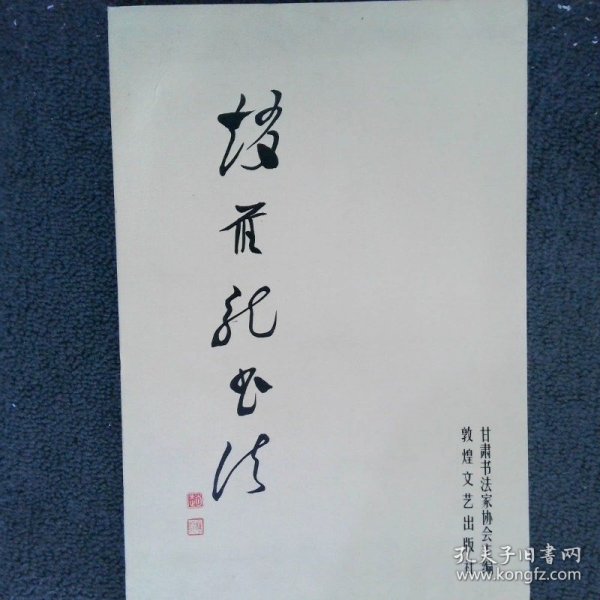 赵正龙书法
甘肃书法家协会主编
敦煌文艺出版社
孔夫子旧书网
www.kongfz.com